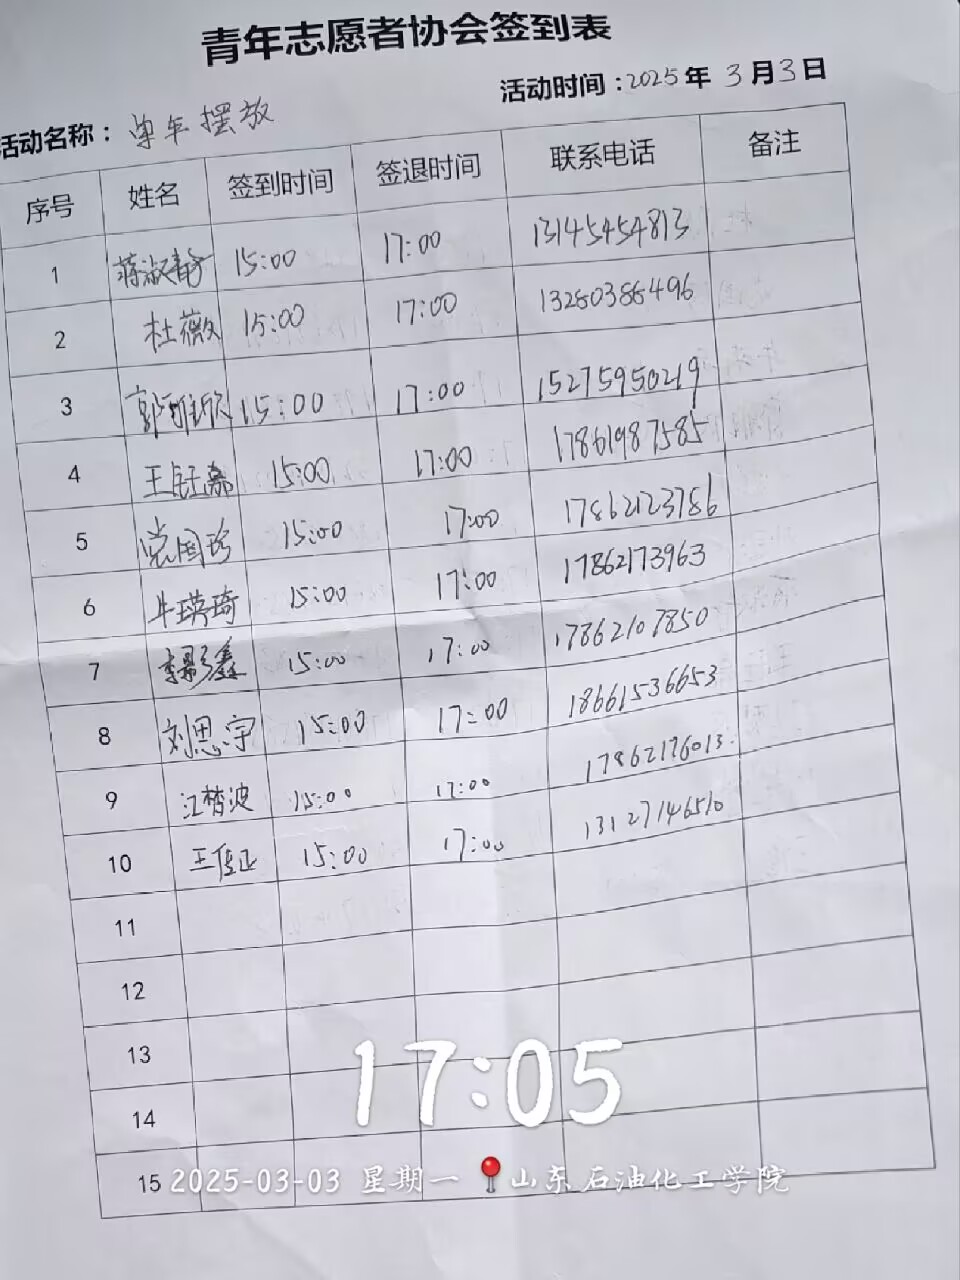 青年志愿者协会签到表
活动名称：单车摆放 活动时间：2025年3月3日
序号 姓名 签到时间 签退时间 联系电话 备注
1 蒋淑静 15:00 17:00 13145454813
2 杜薇 15:00 17:00 13280386496
3 郭雅欣 15:00 17:00 15275950219
4 王钰嘉 15:00 17:00 17861987585
5 党国珍 15:00 17:00 17862123786
6 牛瑛琦 15:00 17:00 17862173963
7 15:00 17:00 17862107850
8 刘思宇 15:00 17:00 18661536653
9 江楷波 15:00 17:00 17862176013
10 王佳正 15:00 17:00 13127146510
11
12
13
14
15
17:05
2025-03-03 星期一 山东石油化工学院